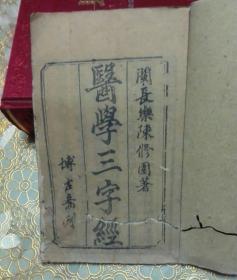 閩長樂陳修園著
醫學三字經
博古齋